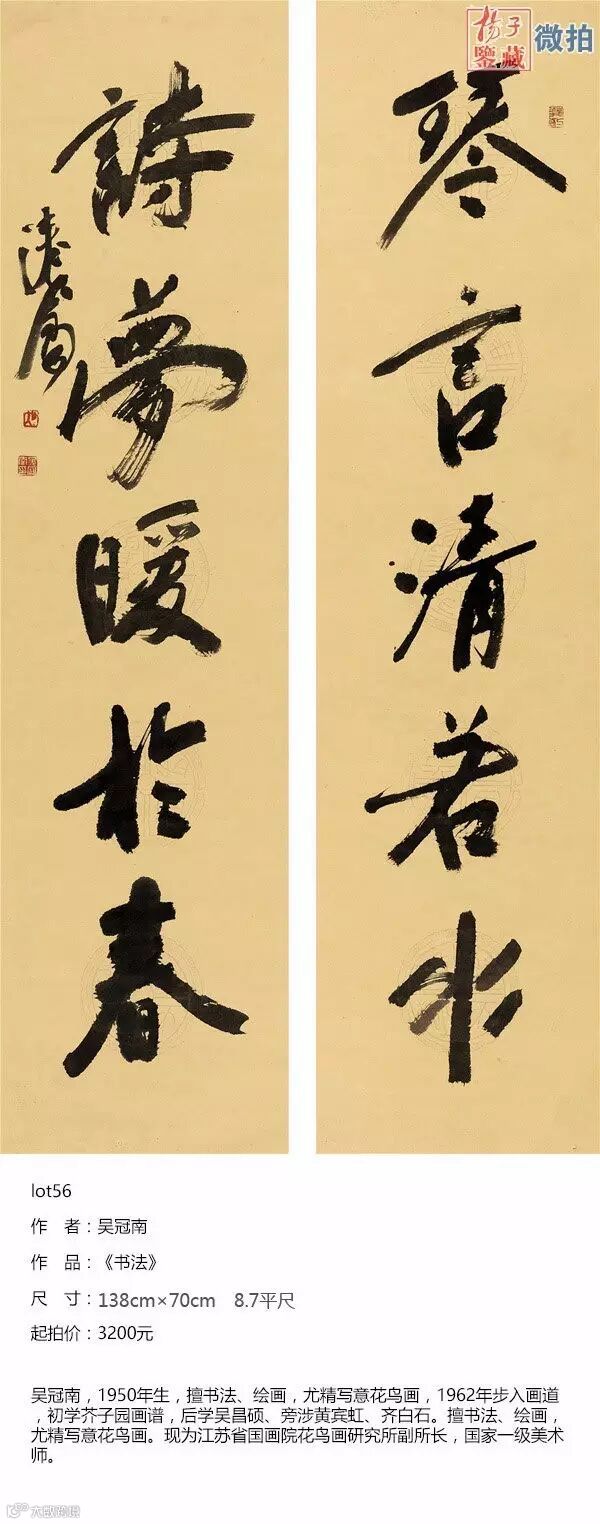 杨子
鉴藏
微拍
琴言清若水
詩夢暖於春
lot56
作 者：吴冠南
作 品：《书法》
尺 寸：138cm×70cm 8.7平尺
起拍价：3200元
吴冠南，1950年生，擅书法、绘画，尤精写意花鸟画，1962年步入画道
，初学芥子园画谱，后学吴昌硕、旁涉黄宾虹、齐白石。擅书法、绘画，
尤精写意花鸟画。现为江苏省国画院花鸟画研究所副所长，国家一级美术
师。
大数跨境